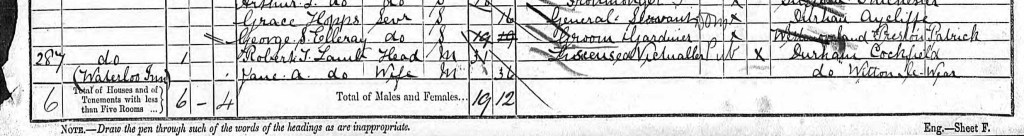 Arthur L. do do S 10
Grace Hopps Serv S 16 General Servant Dom X Durham Aycliffe
George S Elleray do S 19 Groom Gardener X Westmoreland Preston Patrick
287 do 1 Robert T. Lamb Head M 31 Licensed Victualler Pub X Durham Cockfield
(Waterloo Inn) Jane. A. do Wife M 36 do Witton-le-Wear
6 Total of Houses and of Tenements with less than Five Rooms ... 6 - 4 Total of Males and Females... 19 12
NOTE.—Draw the pen through such of the words of the headings as are inappropriate. Eng.—Sheet F.